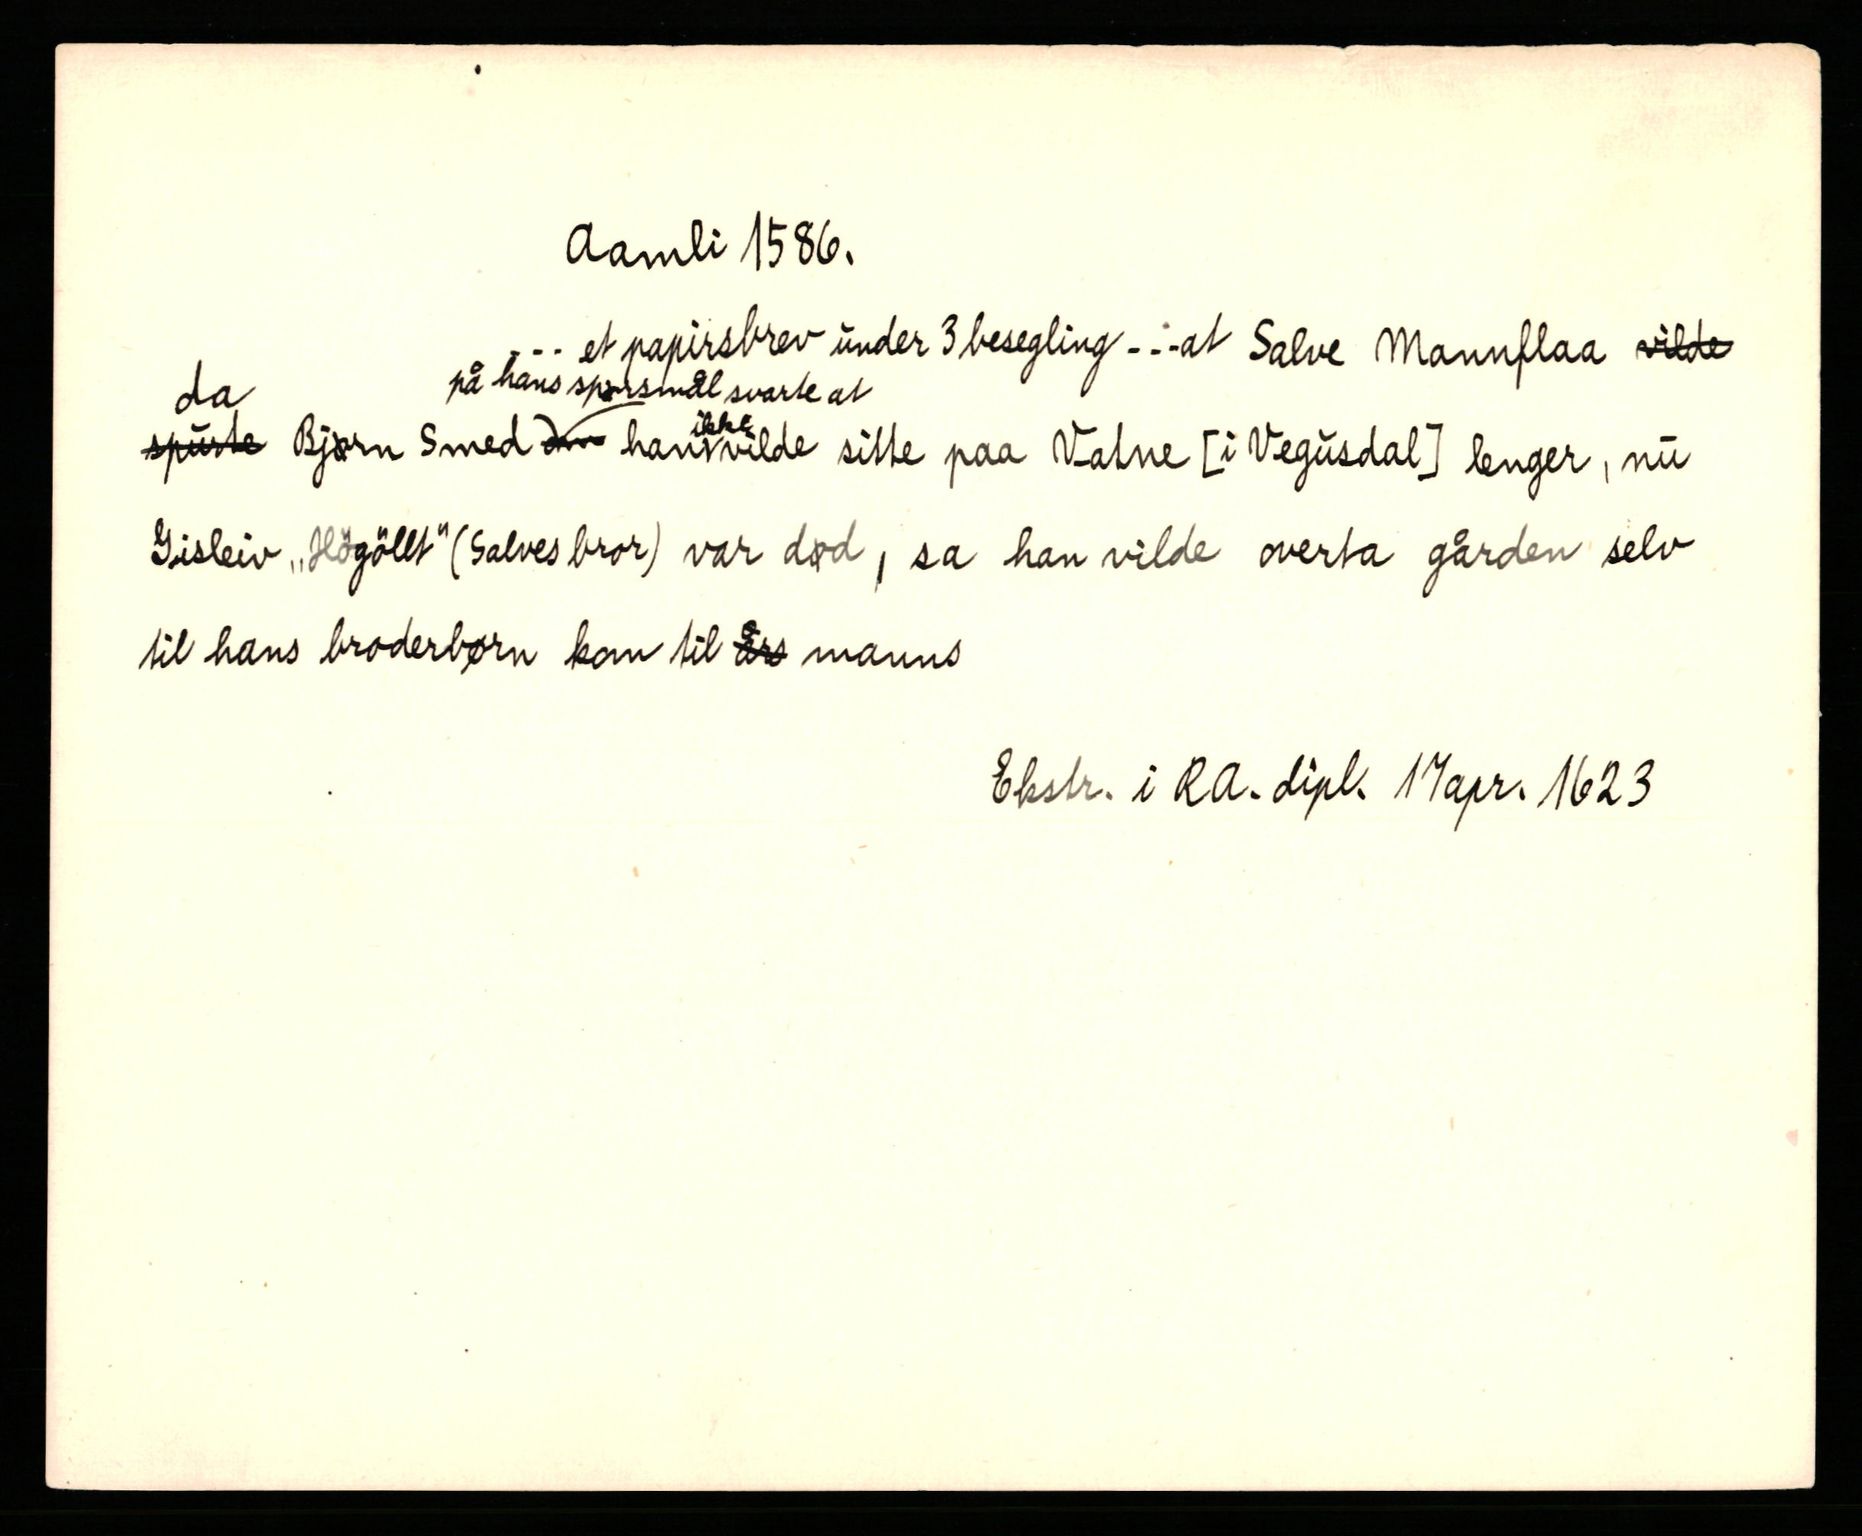 Aamli 1586.
--- et papirsbrev under 3 besegling --- at Salve Mannflaa vilde
da på hans spørsmål svarte at
spurte Bjørn Smed han ikke vilde sitte paa Vatne [i Vegusdal] lenger, nu
Gisleiv „Högöllt" (Salves bror) var død, sa han vilde overta gården selv
til hans broderbørn kom til års manns
Ekstr. i RA. dipl. 17 apr. 1623